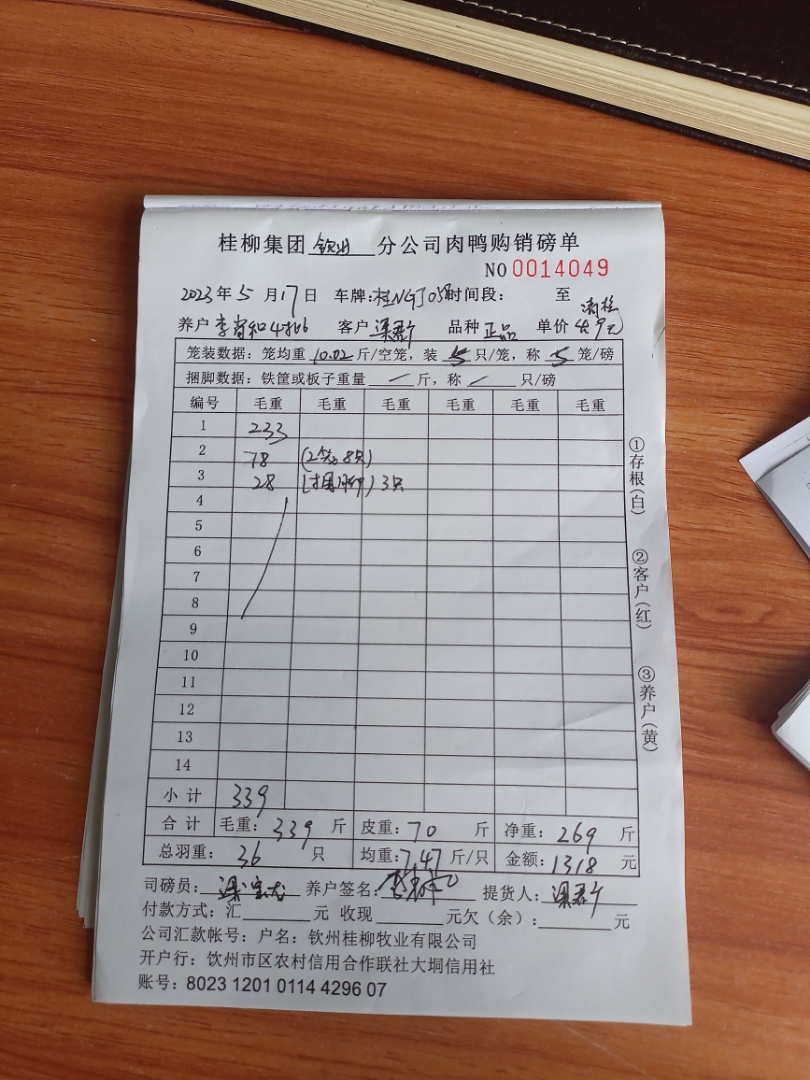 桂柳集团 钦州 分公司肉鸭购销磅单
NO 0014049
2023年5月17日 车牌: 时间段: 至
养户 客户 品种 正品 单价 4.9元
笼装数据：笼均重 10.02 斤/空笼，装 5 只/笼，称 5 笼/磅
捆脚数据：铁筐或板子重量 — 斤，称 — 只/磅
编号 毛重 毛重 毛重 毛重 毛重 毛重
1 233
2 78 (2笼8只)
3 28 (捆脚)3只
4
5
6
7
8
9
10
11
12
13
14
小计 339
合计 毛重：339 斤 皮重：70 斤 净重：269 斤
总羽重：36 只 均重：7.47 斤/只 金额：1318 元
司磅员： 养户签名： 提货人：
付款方式：汇 元 收现 元欠（余）： 元
公司汇款帐号：户名：钦州桂柳牧业有限公司
开户行：钦州市区农村信用合作联社大垌信用社
账号：8023 1201 0114 4296 07
①存根(白)
②客户(红)
③养户(黄)